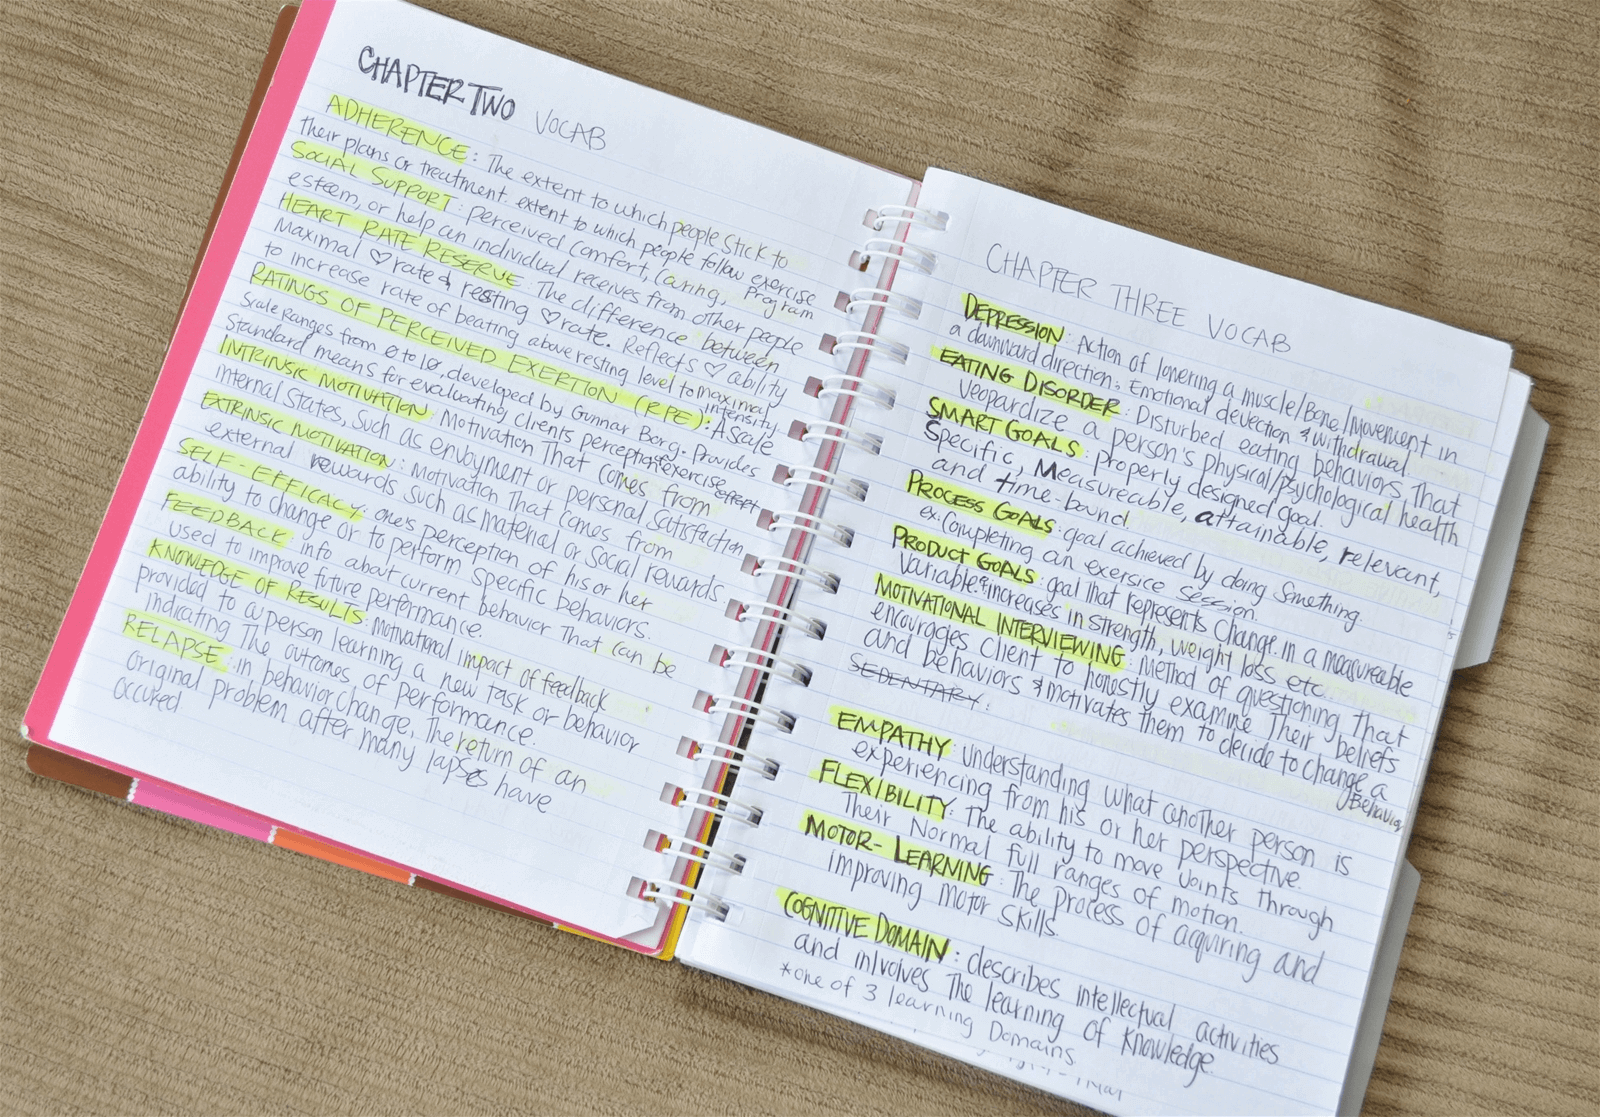 CHAPTER TWO VOCAB
ADHERENCE: The extent to which people stick to
their plans or treatment. extent to which people follow exercise program
SOCIAL SUPPORT: perceived comfort, caring,
esteem, or help an individual receives from other people
HEART RATE RESERVE: The difference between
Maximal ♡ rate & resting ♡ rate. Reflects ♡ ability
to increase rate of beating above resting level to maximal intensity
RATINGS OF PERCEIVED EXERTION (RPE): A scale
Scale Ranges from 0 to 10, developed by Gunnar Borg. Provides
Standard means for evaluating clients perception of exercise effort
INTRINSIC MOTIVATION: Motivation That comes from
internal States, such as enjoyment or personal satisfaction
EXTRINSIC MOTIVATION: Motivation That comes from
external rewards such as material or social rewards
SELF-EFFICACY: one's perception of his or her
ability to change or to perform specific behaviors.
FEEDBACK: info about current behavior That can be
used to improve future performance.
KNOWLEDGE OF RESULTS: Motivational impact of feedback
provided to a person learning a new task or behavior
indicating The outcomes of performance.
RELAPSE: in behavior change, The return of an
original problem after many lapses have
occured
CHAPTER THREE VOCAB
DEPRESSION: Action of lowering a muscle/Bone/Movement in
a downward direction. Emotional devection & withdrawal
EATING DISORDER: Disturbed eating behaviors That
jeopardize a person's physical/psychological health
SMART GOALS: properly designed goal.
Specific, Measureable, attainable, relevant,
and time-bound
PROCESS GOALS: goal achieved by doing Something.
ex: Completing an exersice Session.
PRODUCT GOALS: goal that represents Change in a measureable
Variable & increases in strength, weight loss etc.
MOTIVATIONAL INTERVIEWING: Method of questioning that
encourages client to honestly examine Their beliefs
and behaviors & motivates them to decide to change a Behavior
SEDENTARY:
EMPATHY: understanding what another person is
experiencing from his or her perspective.
FLEXIBILITY: The ability to move joints through
Their Normal full ranges of motion.
MOTOR-LEARNING: The process of acquiring and
improving motor skills.
COGNITIVE DOMAIN: describes intellectual activities
and inlvolves The learning of knowledge.
*one of 3 learning Domains